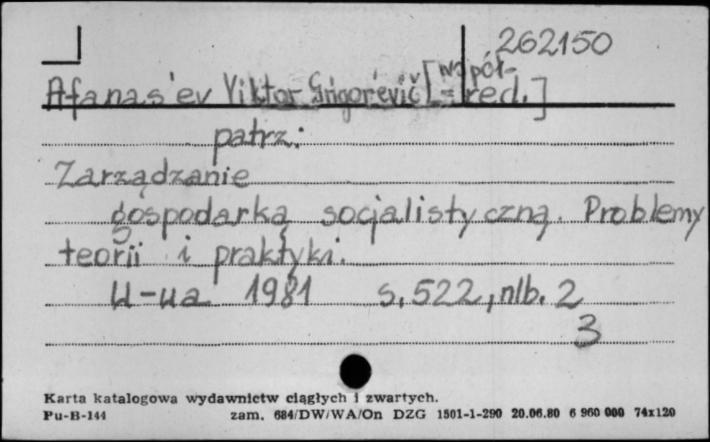 262150
Afanas'ev Viktor Grigor'evič [współ-
red.]
patrz:
Zarządzanie
gospodarką socjalistyczną. Problemy
teorii i praktyki.
W-wa 1981 s. 522, nlb. 2
3
Karta katalogowa wydawnictw ciągłych i zwartych.
Pu-B-144 zam. 684/DW/WA/On DZG 1501-1-290 20.06.80 6 960 000 74x120